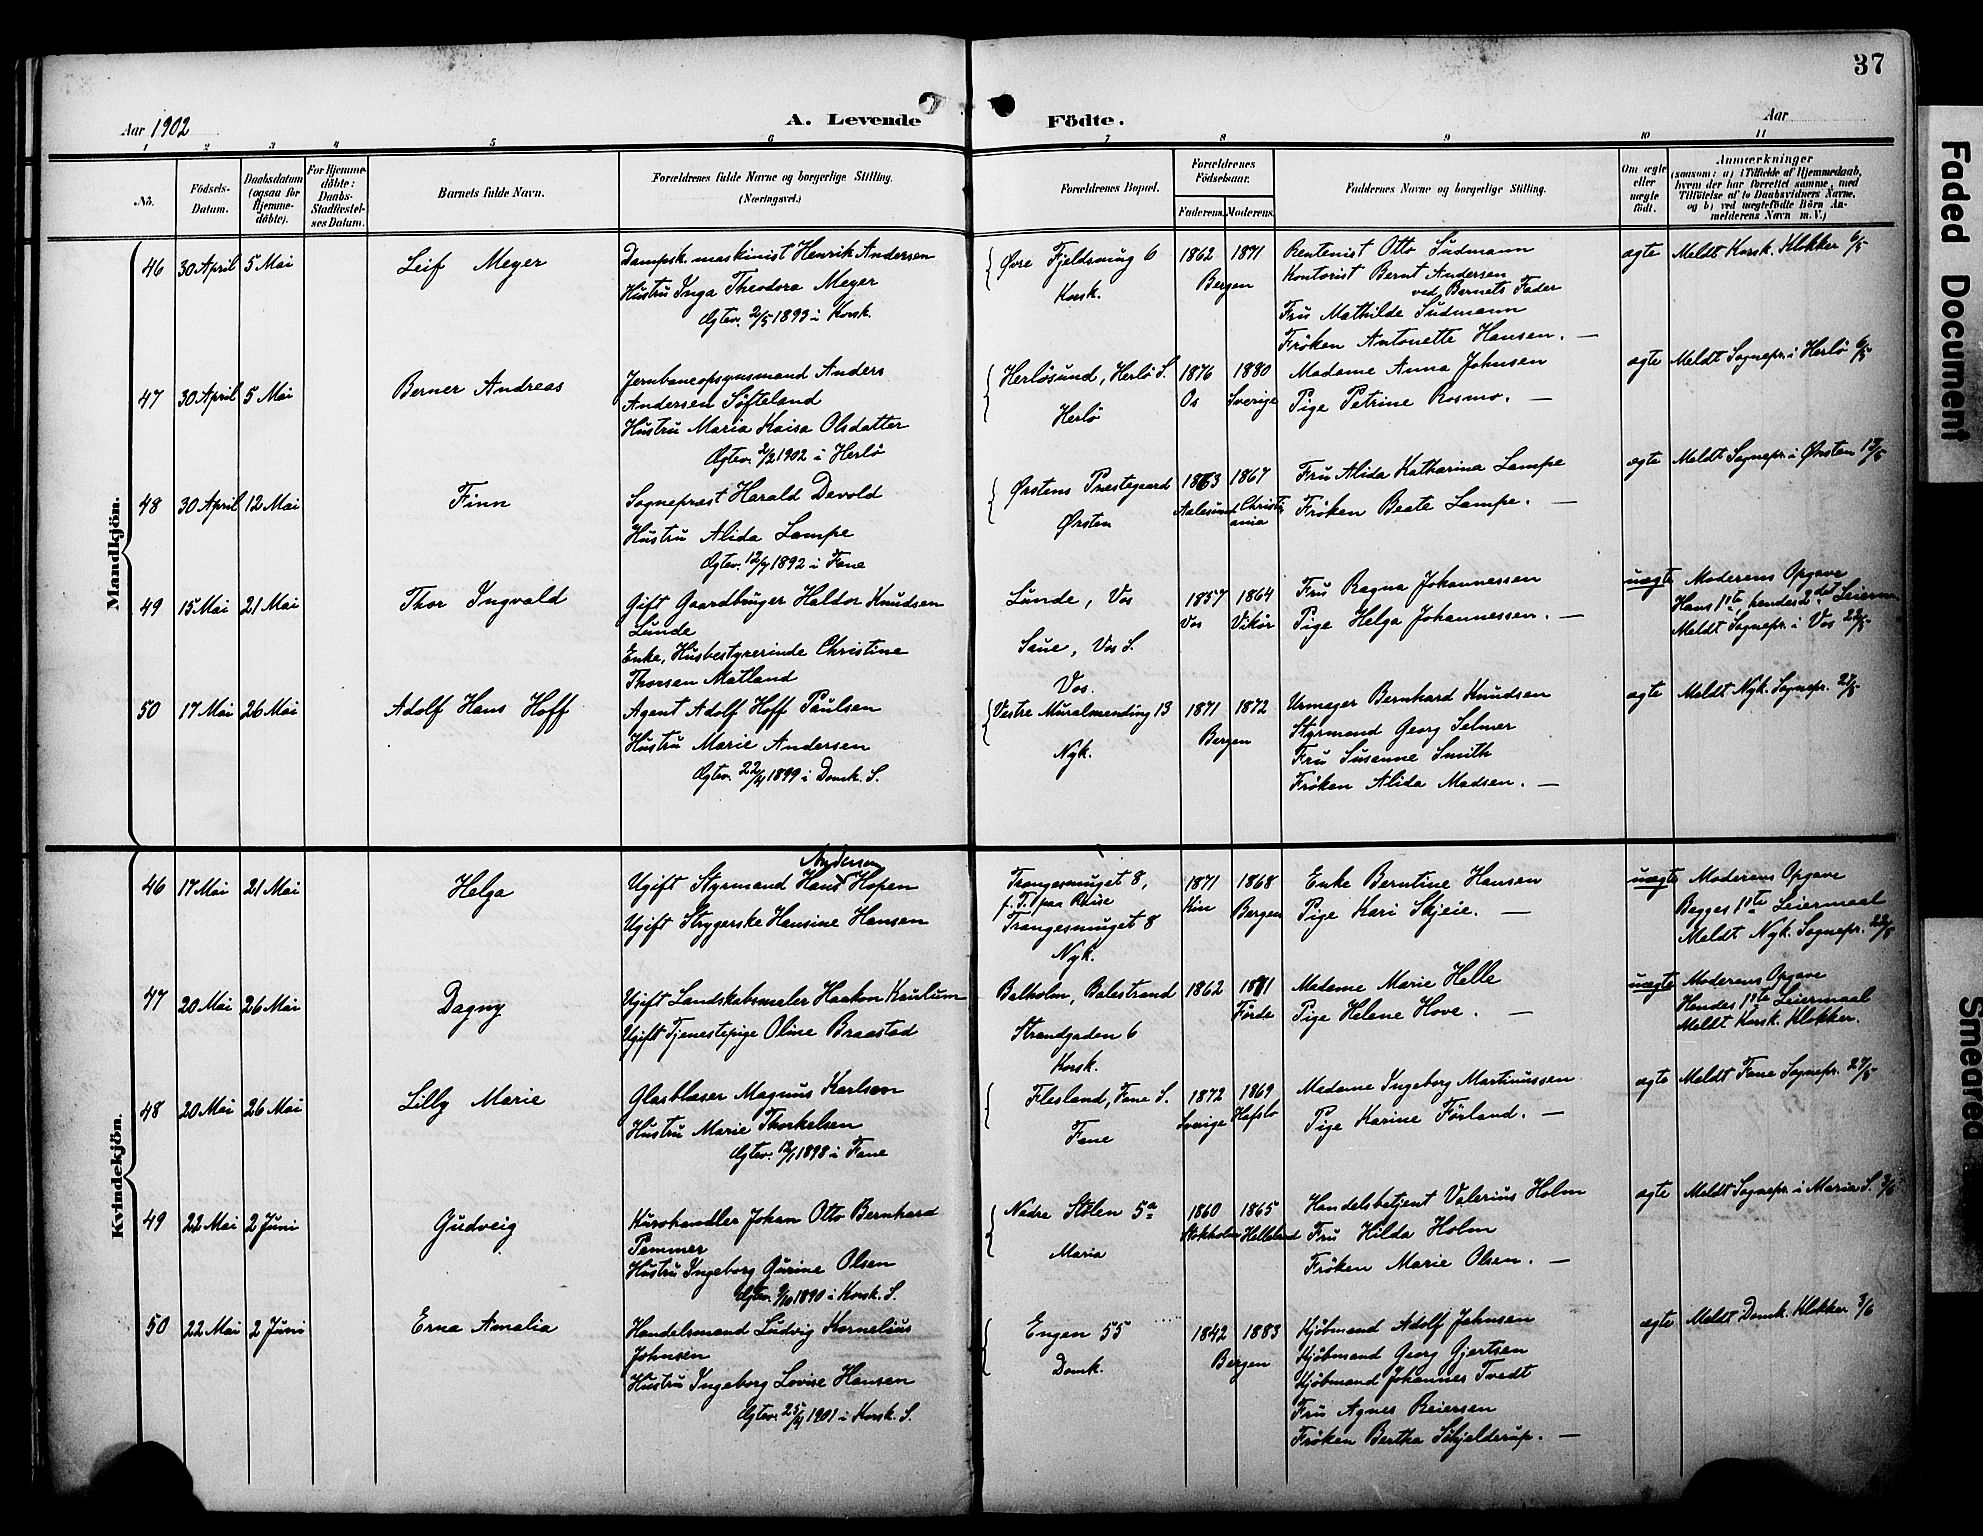 37
Aar 1902
A. Levende Födte.
Aar
1 2 3 4 5 6 7 8 9 10 11
No.
Födsels-Datum.
Daabsdatum (ogsaa for Hjemme-døbte).
For Hjemme-døbte: Daabs-Stadfæstel-ses Datum.
Barnets fulde Navn.
Forældrenes fulde Navne og borgerlige Stilling. (Næringsvei.)
Forældrenes Bopæl.
Forældrenes Födselsaar.
Faderens. Moderens.
Faddernes Navne og borgerlige Stilling.
Om ægte eller uægte født.
Anmærkninger
(saasom: a) i Tilfælde af Hjemmedaab, hvem der har forrettet samme, med Tilföielse af to Daabsvidners Navne, og b) ved uægtefödte Börn An-melderens Navn m. V.)
Mandkjön.
46 30 April 5 Mai Leif Meyer
Dampsk. maskinist Henrik Andersen
Hustru Inga Theodora Meyer
Ægtev. 2/5 1893 i Korsk.
Øvre Fjeldsmug 6
Korsk.
1862 1871
Bergen
Rentenist Otto Sudmann
Kontorist Bernt Andersen
ved Barnets Fader
Fru Mathilde Sudmann
Frøken Antonette Hansen. —
ægte Meldt Korsk. Klokker 6/5
47 30 April 5 Mai Berner Andreas
Jernbaneopsynsmand Anders
Andersen Söfteland
Hustru Maria Kaisa Olsdatter
Ægtev. 2/2 1902 i Herlö
Herlösund, Herlö S.
Herlö
1876 1880
Os Sverige
Madame Anna Johnsen
Pige Petrine Rosmo. —
ægte Meldt Sognepr. i Herlö 6/5
48 30 April 12 Mai Finn
Sogneprest Harald Devold
Hustru Alida Lampe
Ægtev. 12/7 1892 i Fane
Ørstens Prestegaard
Ørsten
1863 1867
Aalesund Christiania
Fru Alida Katharina Lampe
Frøken Beate Lampe. —
ægte Meldt Sognepr. i Ørsten 13/5
49 15 Mai 21 Mai Thor Ingvald
Gift Gaardbruger Haldor Knudsen
Lunde
Enke, Husbestyrerinde Christine
Thorsen Matland
Lunde, Vos
Saue, Vos S.
Vos.
1857 1864
Vos Vikør
Fru Ragna Johannessen
Pige Helga Johannessen. —
uægte Moderens Opgave
Hans 1ste, hendes 2det Leierm.
Meldt Sognepr. i Vos 22/5
50 17 Mai 26 Mai Adolf Hans Hoff
Agent Adolf Hoff Paulsen
Hustru Marie Andersen
Ægtev. 22/4 1899 i Domk. S.
Vestre Muralmending 13
Nyk.
1871 1872
Bergen
Urmager Bernhard Knudsen
Styrmand Georg Selmer
Fru Susanne Smith
Frøken Alida Madsen. —
ægte Meldt Nyk. Sognepr. 27/5
Kvindekjön.
46 17 Mai 21 Mai Helga
Andersen
Ugift Styrmand Hans Hopen
Ugift Strygerske Hansine Hansen
Trangesmuget 8,
f. T. paa Reise
Trangesmuget 8
Nyk.
1871 1868
Kin Bergen
Enke Berntine Hansen
Pige Kari Skjeie. —
uægte Moderens Opgave
Begges 1ste Leiermaal
Meldt Nyk. Sognepr. 22/5
47 20 Mai 26 Mai Dagny
Ugift Landskabsmaler Haakon Kaulum
Ugift Tjenestepige Oline Braastad
Balholm, Balestrand
Strandgaden 6
Korsk.
1862 1881
Förde
Madame Marie Helle
Pige Helene Hove. —
uægte Moderens Opgave
Hendes 1ste Leiermaal
Meldt Korsk. Klokker.
48 20 Mai 26 Mai Lilly Marie
Glasblæser Magnus Karlson
Hustru Marie Thorkelsen
Ægtev. 12/1 1898 i Fane
Flesland, Fane S.
Fane
1872 1869
Sverige Hafslo
Madame Ingeborg Martinussen
Pige Karine Förland. —
ægte Meldt Fane Sognepr. 27/5
49 22 Mai 2 Juni Gudveig
Kurvhandler Johan Otto Bernhard
Pemmer
Hustru Ingeborg Gurine Olsen
Ægtev. 9/10 1890 i Korsk. S.
Nedre Stölen 5a
Maria
1860 1865
Stokholm Helleland
Handelsbetjent Valerius Holm
Fru Hilda Holm
Frøken Marie Olsen. —
ægte Meldt Sognepr. i Maria S. 3/6
50 22 Mai 2 Juni Erna Amalia
Handelsmand Ludvig Kornelius
Johnsen
Hustru Ingeborg Lovise Hansen
Ægtev. 25/4 1901 i Korsk. S.
Engen 55
Domk.
1842 1883
Bergen
Kjöbmand Adolf Johnsen
Kjöbmand Georg Gjertsen
Kjöbmand Johannes Tvedt
Fru Agnes Reiersen
Frøken Bertha Schjelderup. —
ægte Meldt Domk. Klokker 3/6
Faded Document
Smeared